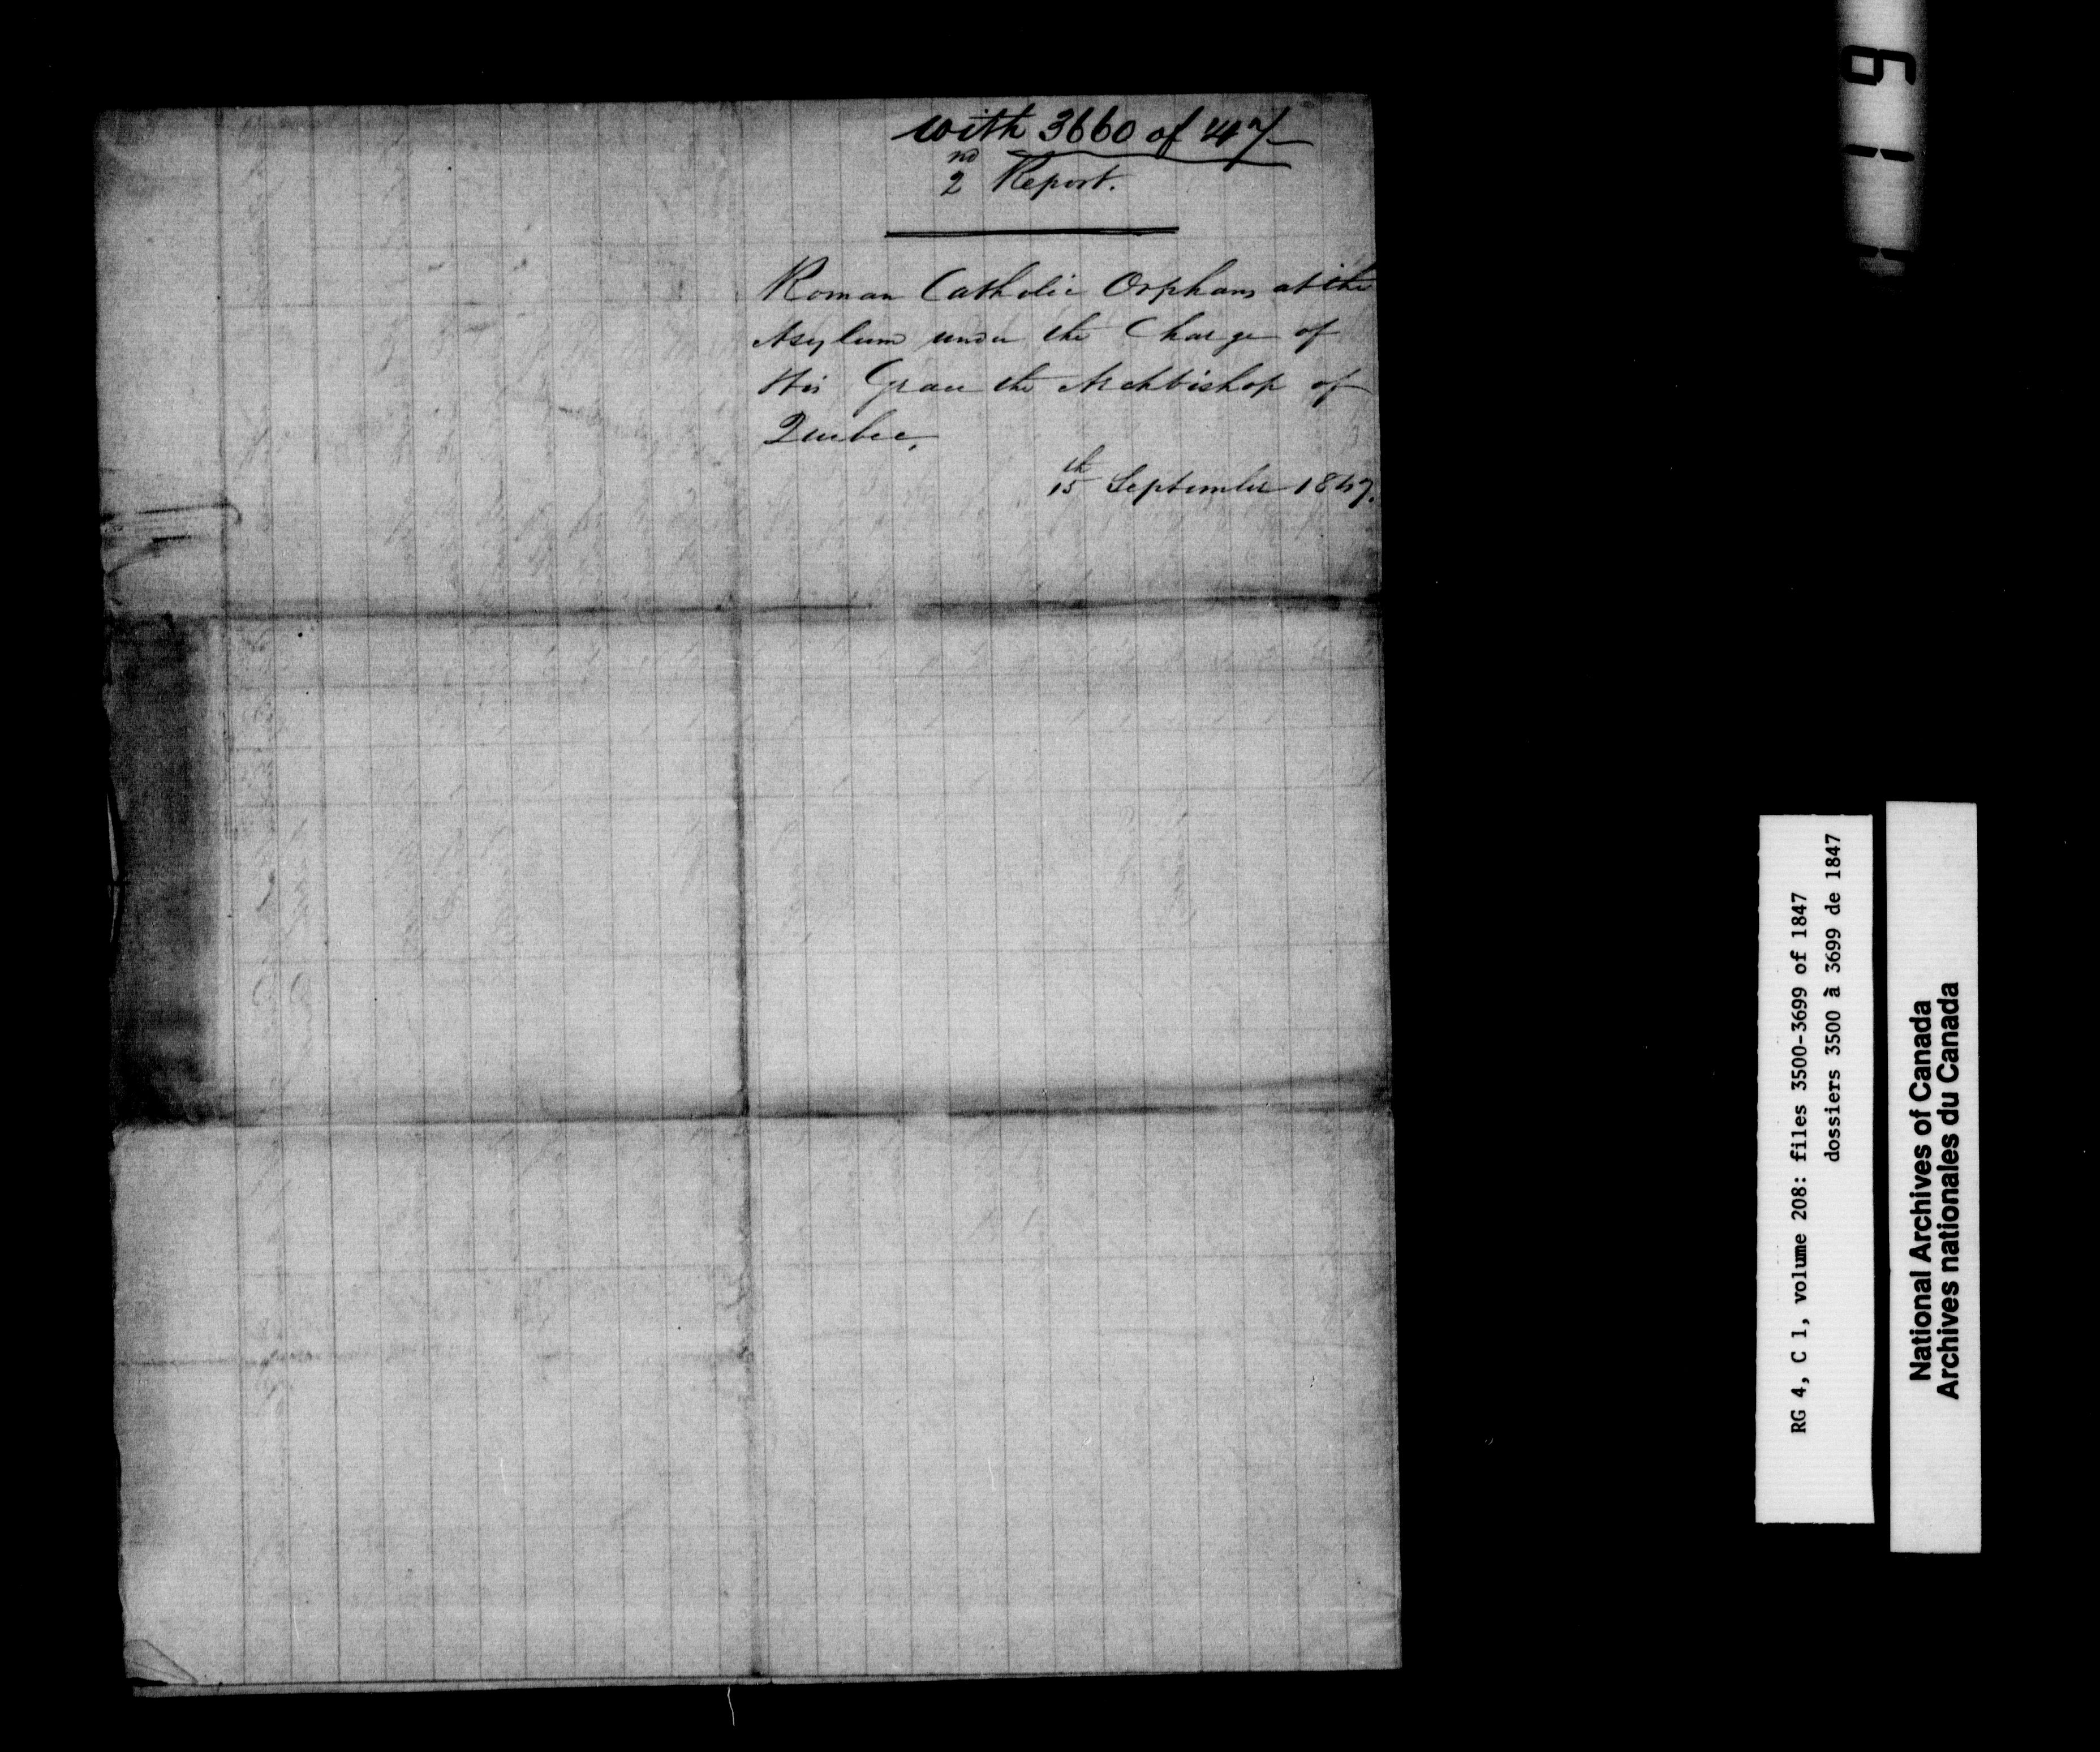 with 3660 of 47
2nd Report.
Roman Catholic Orphans at the
Asylum under the Charge of
His Grace the Archbishop of
Quebec,
15th September 1847.
RG 4, C 1, volume 208: files 3500-3699 of 1847
dossiers 3500 à 3699 de 1847
National Archives of Canada
Archives nationales du Canada